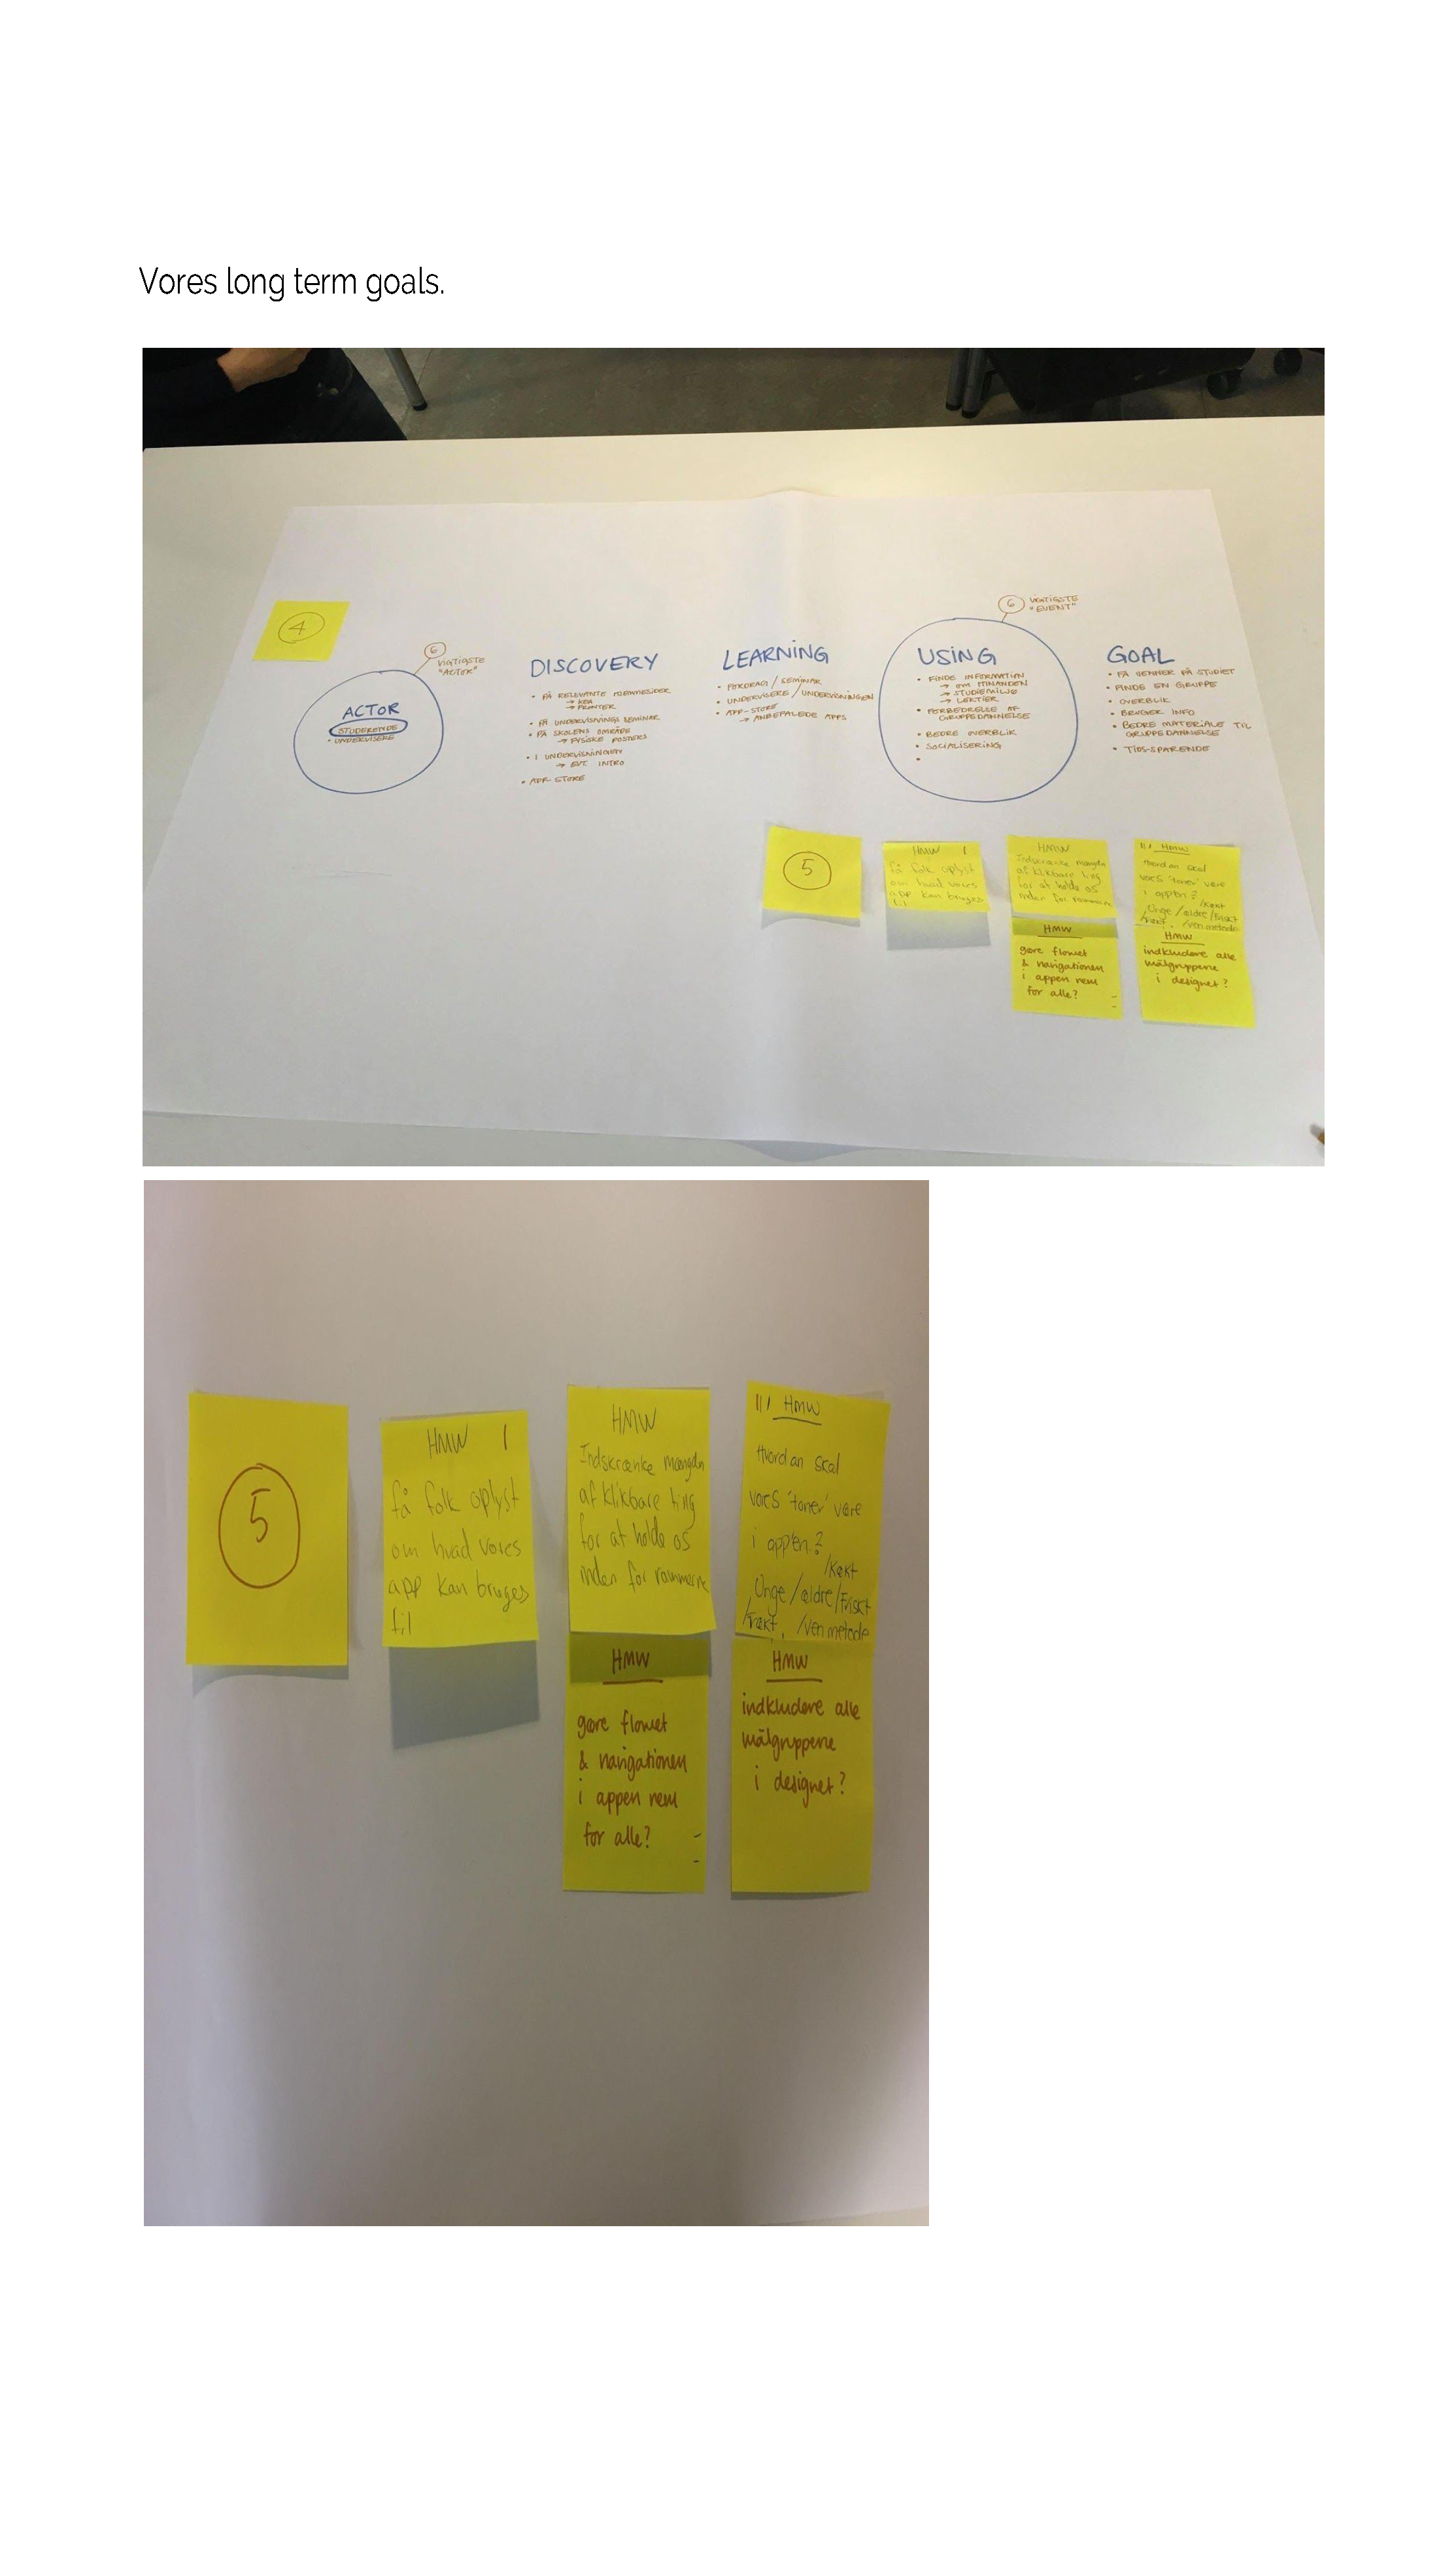 Vores long term goals.
4
6
VIGTIGSTE
"ACTOR"
ACTOR
STUDERENDE
• UNDERVISERE
DISCOVERY
• PÅ RELEVANTE HJEMMESIDER
→ KEA
→ FRONTER
• PÅ UNDERVISNINGS SEMINAR
• PÅ SKOLENS OMRÅDE
→ FYSISKE POSTERS
• I UNDERVISNINGEN
→ EVT. INTRO
• APP STORE
LEARNING
• FOREDRAG / SEMINAR
• UNDERVISERE / UNDERVISNINGEN
• APP-STORE
→ ANBEFALEDE APPS
6
VIGTIGSTE
"EVENT"
USING
• FINDE INFORMATION
→ OM HINANDEN
→ STUDIEMILJØ
→ LEKTIER
• FORBEDRELSE AF
GRUPPEDANNELSE
• BEDRE OVERBLIK
• SOCIALISERING
•
GOAL
• FÅ VENNER PÅ STUDIET
• FINDE EN GRUPPE
• OVERBLIK
• BRUGER INFO
• BEDRE MATERIALE TIL
GRUPPEDANNELSE
• TIDS-SPARENDE
5
HMW I
få folk oplyst
om hvad vores
app kan bruges
til
HMW
Indskrænke mængdn
af klikbare ting
for at holde os
inden for rammerne
HMW
gøre flowet
& navigationen
i appen nem
for alle?
III HMW
Hvordan skal
vores 'toner' være
i appen?
/Kækt
Unge/ældre/Friskt
/Vennetode
HMW
indkludere alle
målgrupperne
i designet?
5
HMW I
få folk oplyst
om hvad vores
app kan bruges
til
HMW
Indskrænke mængdn
af klikbare ting
for at holde os
inden for rammerne
HMW
gøre flowet
& navigationen
i appen nem
for alle?
III HMW
Hvordan skal
vores 'toner' være
i appen?
/Kækt
Unge/ældre/Friskt
HMW
indkludere alle
målgrupperne
i designet?